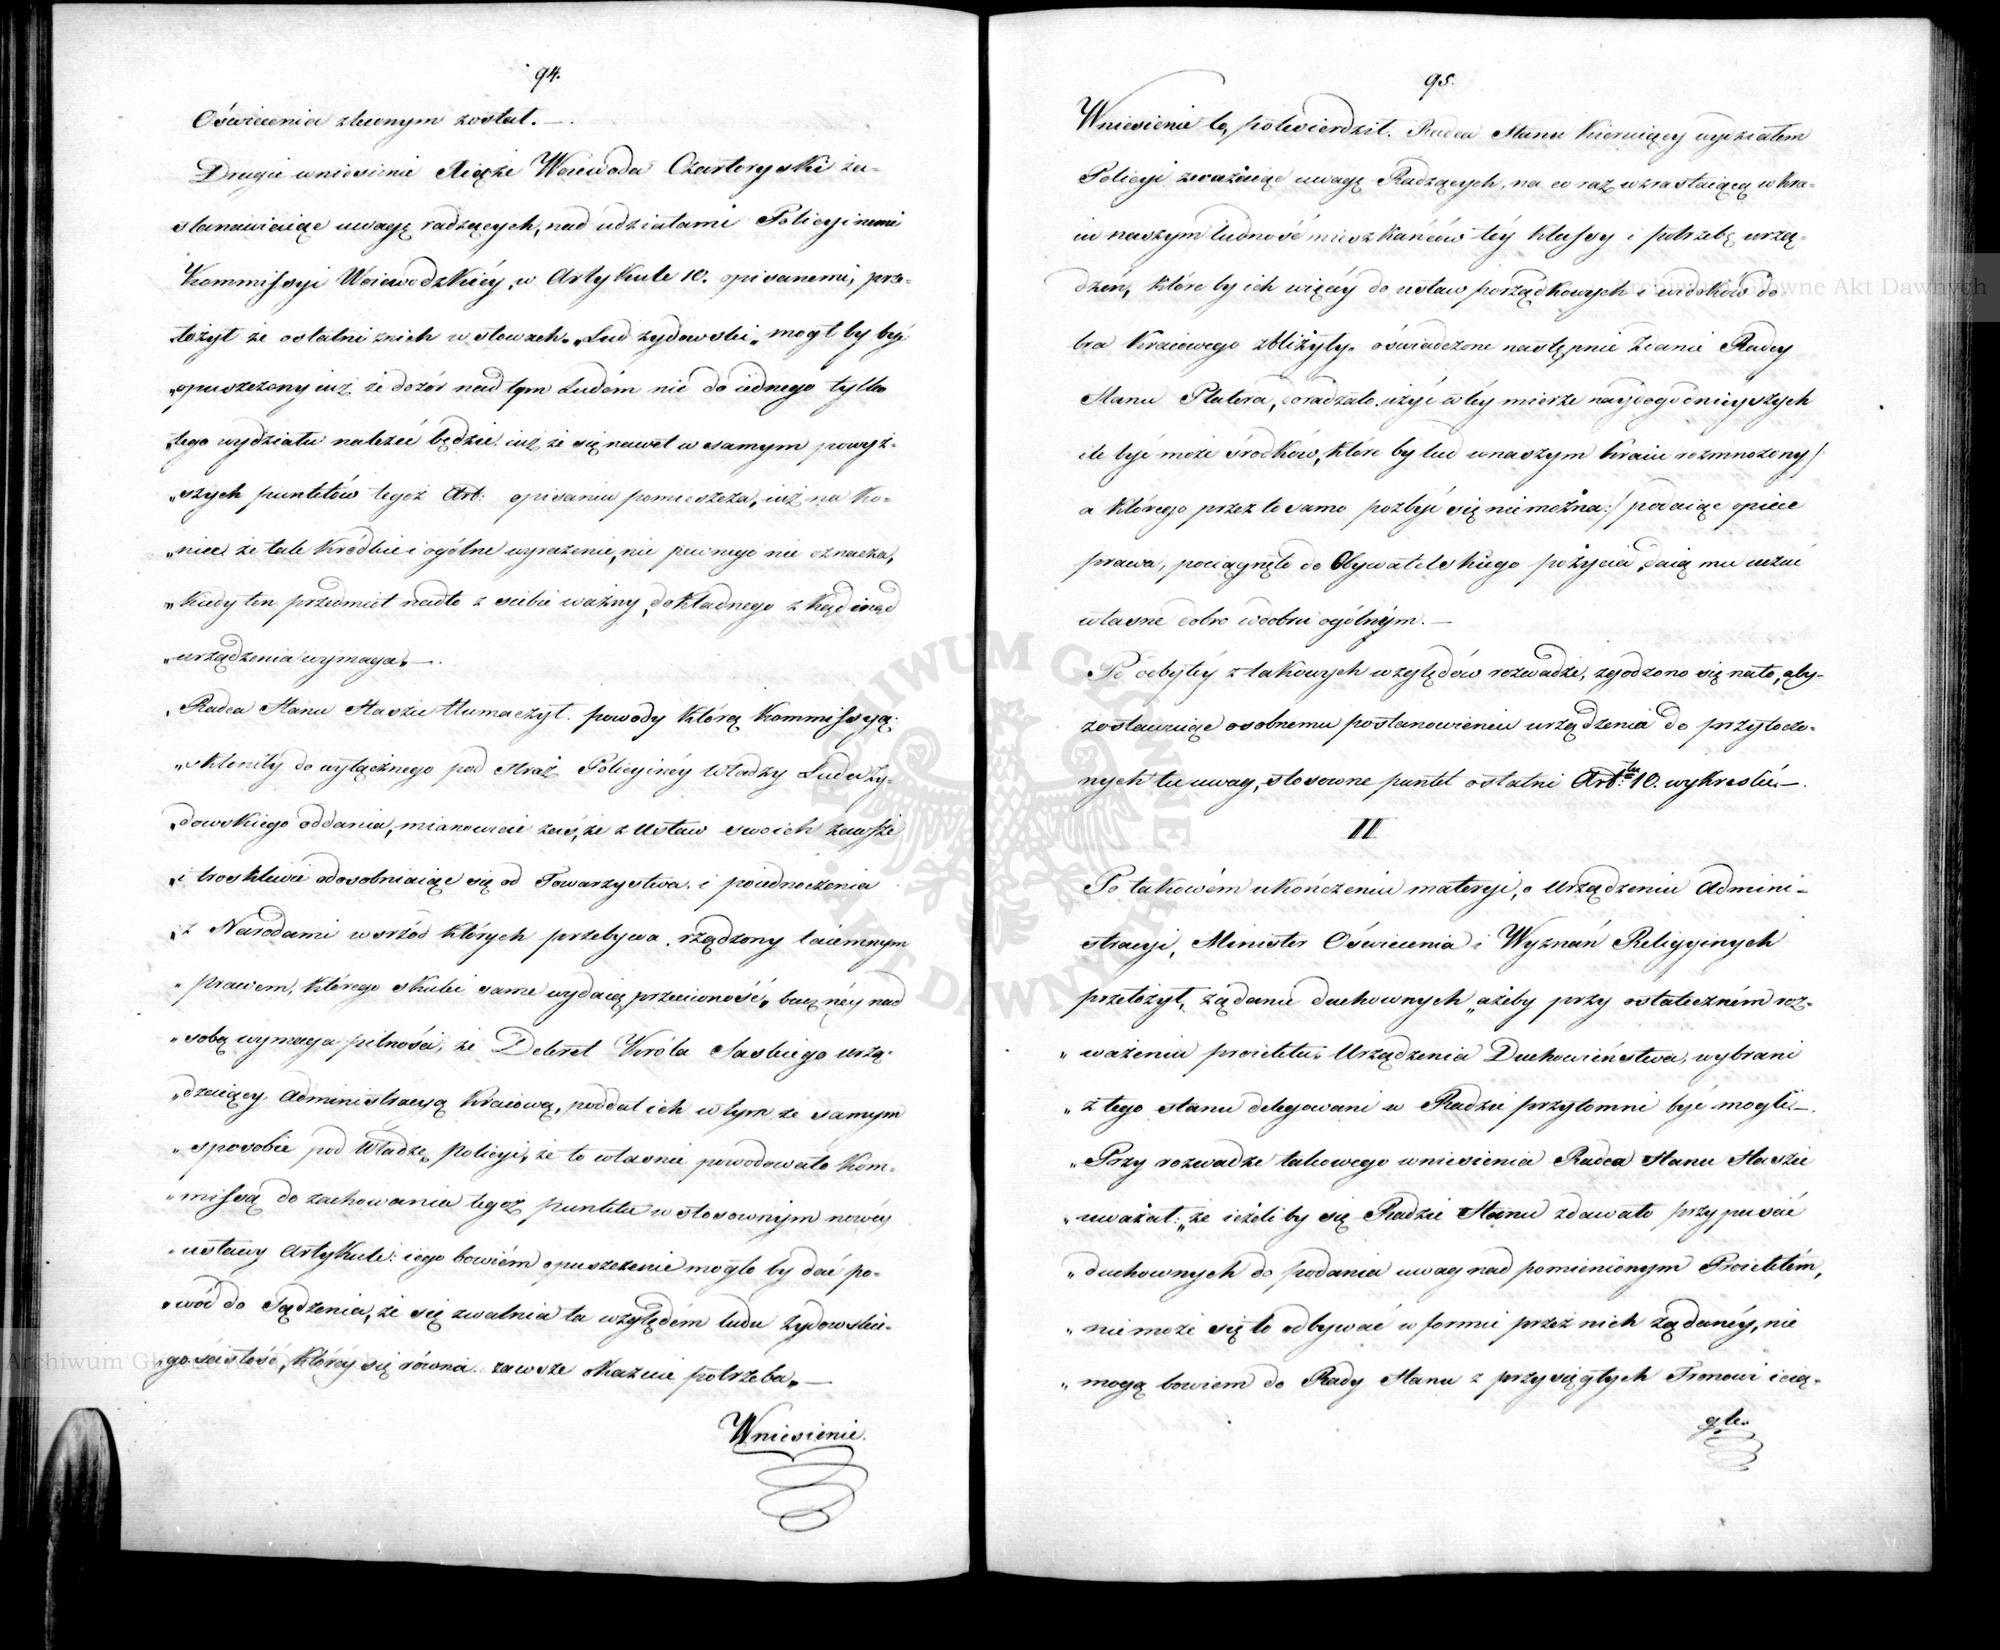 94.
Oświecenia zleconym został. —.
Drugie wniesienie Xiąże Woiewoda Czartoryski za-
stanawiaiąc uwagę radzących, nad udziałami Policyinemi
Kommissyi Woiewodzkiéy, w Artykule 10. opisanemi, prze-
łożył że ostatni znich w słowach „Lud żydowski„ mógł by być
„opuszczony iuż że dozór nad tym Ludém nie do iednego tylko
„tego wydziału należeć będzie, iuż że się nawet w samym powyż-
„szych punktów tegoż Art: opisaniu pomieszcza, iuż na ko-
„niec że tak krótkie i ogólne wyrażenie, nic pewnego nie oznacza,
„kiedy ten przedmiot nadto z siebie ważny, dokładnego z kąd inąd
„urządzenia wymaga„ —.
Radca Stanu Staszic tłumaczył powody którą Kommissyą
„skłoniły do wyłącznego pod straż Policyinéy Władzy Ludu Ży-
„dowskiego oddania, mianowicie zaś, że z Ustaw swoich zawsze
„i troskliwie odosobniaiąc się od Towarzystwa i poiednoczenia
„z Narodami wsrzód których przebywa, rządzony taiemnym
„prawem, którego skutki same wydaią przeciwność, bacznéy nad
„sobą wymaga pilności, że Dekret Króla Saskiego urzą-
„dzaiący Administracyą Kraiową, poddał ich w tym że samym
„sposobie pod Władzę Policyi, że to własnie powodowało Kom-
„missyą do zachowania tegoż punktu w stosownym nowéy
„ustawy Artykule: iego bowiém opuszczenie mogło by dać po-
„wód do sądzenia, że się zwalnia ta względém ludu Żydowskie-
„go scisłość, któréy się równie zawsze okazuie potrzeba„ —
Wniesienie.
95.
Wniesienie to, potwierdził Radca Stanu Kieruiący wydziałem
Policyi zwracaiąc uwagę Radzących, na co raz wzrastaiącą w kra-
iu naszym ludność mieszkańców téy klassy i potrzebę urzą-
dzeń, które by ich więcéy do ustaw porządkowych i widoków do-
bra Kraiowego zbliżyły„ oświadczone następnie Zdanie Radcy
Stanu Platera, doradzało użyć w téy mierze naydogodnieyszych
ile być może środków, które by lud w naszym Kraiu rozmnożony /:
a którego przez to samo pozbyć się nie można:/ podaiąc opiece
prawa, pociągnęło do Obywatelskiego pożycia, daią mu uczuć
własne dobro wdobru ogólnym. —
Po odbytéy z takowych względów rozwadze, zgodzono się na to, aby
zostawuiąc osobnemu postanowieniu urządzenia do przytoczo-
nych tu uwag, stosowne punkt ostatni Art:łu 10. wykreslić —.
II
Po takowém ukończeniu materyi, o Urządzeniu Admini-
stracyi, Minister Oświecenia i Wyznań Religyinych
przełożył, żądanie duchownych „ażeby przy ostateczném roz-
„ważeniu proiektu Urządzenia Duchowieństwa, wybrani
„z tego stanu delegowani w Radzie przytomni być mogli —.
„Przy rozwadze takowego wniesienia Radca Stanu Staszic
„uważał: „że ieżeli by się Radzie Stanu zdawało przypuścić
„duchownych do podania uwag nad pomienionym Proiektém,
„nie może się to odbywać w formie przez nich żądanéy, nie
„mogą bowiem do Rady Stanu z przysięgłych Tronowi i cią-
gle
Archiwum Główne Akt Dawnych
ARCHIWUM GŁÓWNE AKT DAWNYCH
Archiwum Główne Akt Dawnych